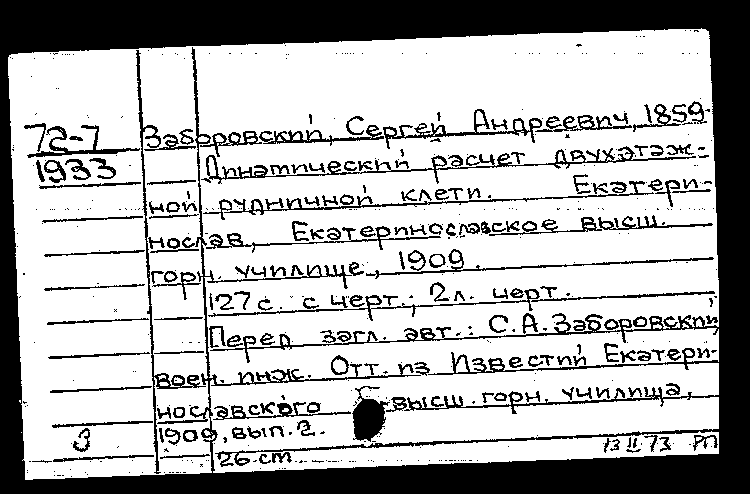 72-7
1933
Заборовский, Сергей Андреевич, 1859-
Динамический расчет двухэтаж-
ной рудничной клети. Екатери-
нослав, Екатеринославское высш.
горн. училище, 1909.
127 с. с черт.; 2 л. черт.
Перед загл. авт.: С.А. Заборовский,
воен. инж. Отт. из Известий Екатери-
нославского высш. горн. училища,
1909, вып. 2.
26 cm
З
13 II 73 РП